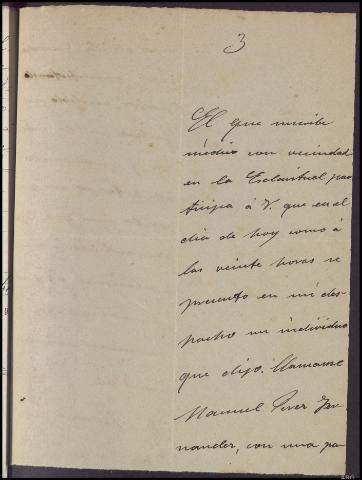 3
El que suscribe
médico con vecindad
en la Esclavitud, par
ticipa á V. que en el
dia de hoy como á
las veinte horas se
presento en mi des-
pacho un individuo
que dijo llamarse
Manuel Perez Fer-
nandez, con una pa